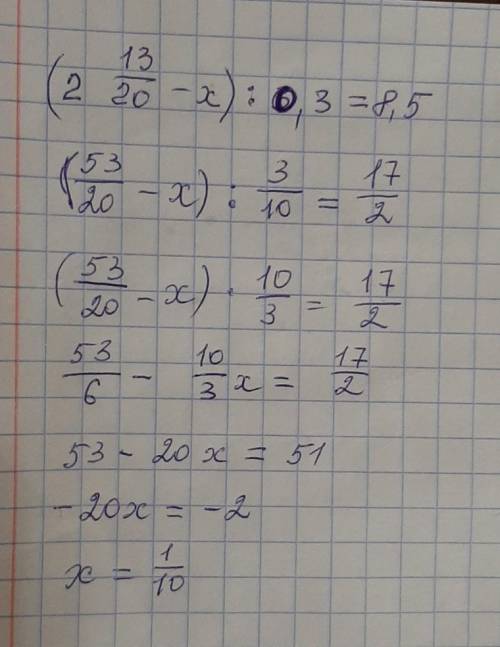 (2 13/20 - x) : 0,3 = 8,5
(53/20 - x) : 3/10 = 17/2
(53/20 - x) · 10/3 = 17/2
53/6 - 10/3 x = 17/2
53 - 20x = 51
-20x = -2
x = 1/10